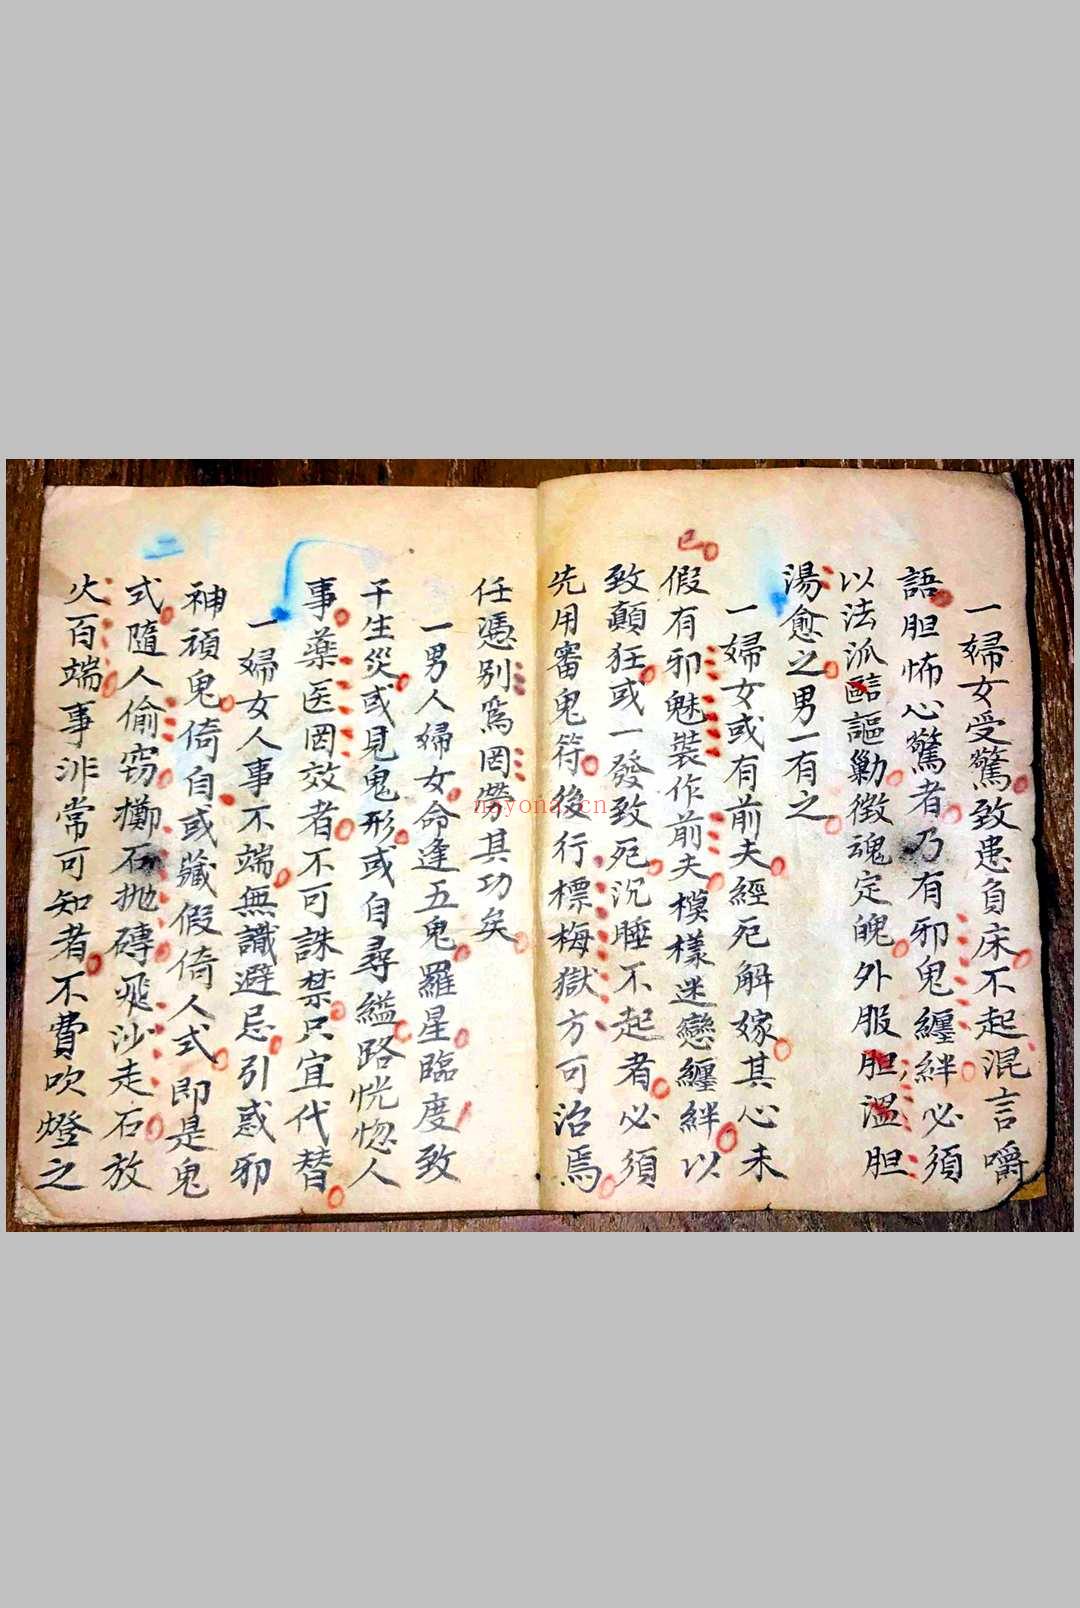 一婦女受驚致患負床不起混言嚼
語胆怖心驚者乃有邪鬼纏絆必須
以法派謳勦徴魂定魄外服胆溫胆
湯愈之男一有之
一婦女或有前夫經死解嫁其心未
假有邪魅裝作前夫模樣迷戀纏絆以
致顛狂或一發致死沉睡不起者必須
先用審鬼符後行標梅獄方可治焉
任憑别篤罔勞其功矣
一男人婦女命逢五鬼羅星臨度致
干生災或見鬼形或自尋縊路恍惚人
事藥医罔效者不可誅禁只宜代替
一婦女人事不端無識避忌引惑邪
神頑鬼倚自或藏假倚人式即是鬼
式隨人偷窃擲石抛磚飛沙走石放
火百端事非常可知者不費吹燈之
已
二
nayona.cn